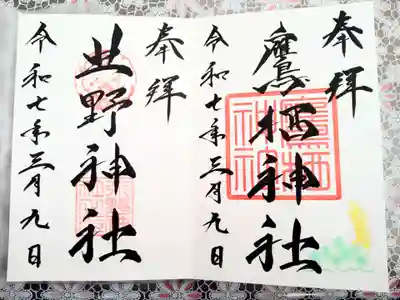 奉拝
鷹栖神社
令和七年三月九日
鷹栖神社
奉拝
丘野神社
令和七年三月九日